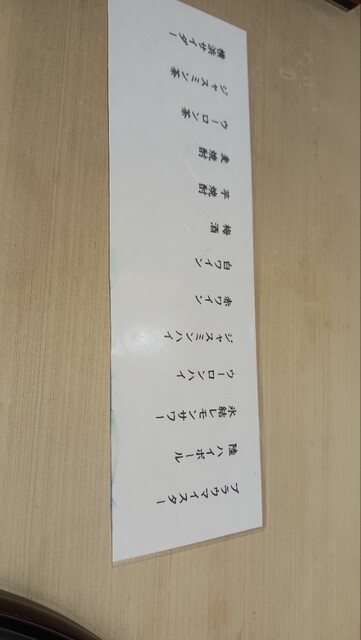 ブラウマイスター
陸ハイボール
氷結レモンサワー
ウーロンハイ
ジャスミンハイ
赤ワイン
白ワイン
梅酒
芋焼酎
麦焼酎
ウーロン茶
ジャスミン茶
横浜サイダー